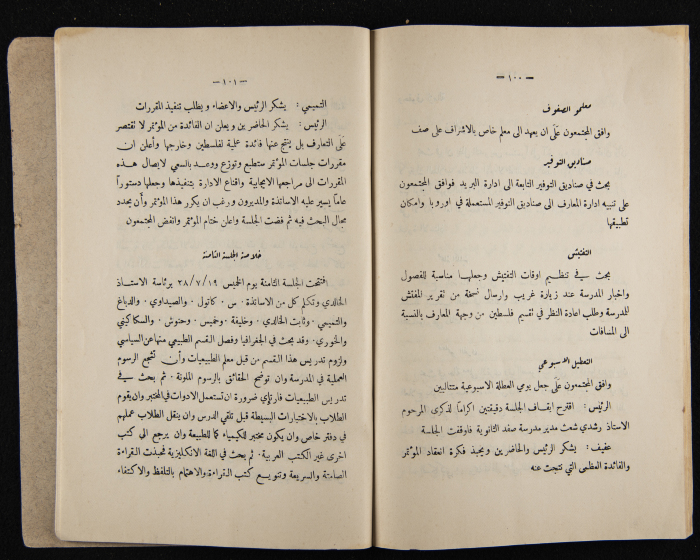 — ١٠٠ —
معلمو الصفوف
وافق المجتمعون عَلَى ان يعهد الى معلم خاص بالاشراف على صف
صناديق التوفير
بحث في صناديق التوفير التابعة الى ادارة البريد فوافق المجتمعون
على تنبيه ادارة المعارف الى صناديق التوفير المستعملة في اوروبا وامكان
تطبيقها
التفتيش
بحث في تنظيم اوقات التفتيش وجعلها مناسبة للفصول
واخبار المدرسة عند زيارة غريب وارسال نسخة من تقرير المفتش
للمدرسة وطلب اعادة النظر في تقسيم فلسطين من وجهة المعارف بالنسبة
الى المسافات
التعطيل الاسبوعي
وافق المجتمعون عَلَى جعل يومي العطلة الاسبوعية متتاليين
الرئيس : اقترح ايقاف الجلسة دقيقتين اكرامًا لذكرى المرحوم
الاستاذ رشدي شعث مدير مدرسة صفد الثانوية فاوقفت الجلسة
عفيف : يشكر الرئيس والحاضرين ويحبذ فكرة انعقاد المؤتمر
والفائدة العظمى التي نتجت عنه
— ١٠١ —
التميمي : يشكر الرئيس والاعضاء ويطلب تنفيذ المقررات
الرئيس : يشكر الحاضرين ويعلن ان الفائدة من المؤتمر لا تقتصر
عَلَى التعارف بل ينتج عنها فائدة عملية لفلسطين وخارجها وأعلن ان
مقررات جلسات المؤتمر ستطبع وتوزع ووعد بالسعي لايصال هذه
المقررات الى مراجعها الايجابية واقناع الادارة بتنفيذها وجعلها دستوراً
عاماً يسير عليه الاساتذة والمديرون ورغب ان يكرر هذا المؤتمر وأن يحدد
مجال البحث فيه ثم فضت الجلسة واعلن ختام المؤتمر وانفض المجتمعون
خلاصة الجلسة الثامنة
افتتحت الجلسة الثامنة يوم الخميس ٢٨/٧/١٩ برئاسة الاستاذ
الخالدي وتكلم كل من الاساتذة . س . كاتول . والصيداوي . والدباغ
والتميمي . وثابت الخالدي . وخليفة . وخميس . وحنوش . والسكاكيني
والخوري . وقد بحث في الجغرافيا وفصل القسم الطبيعي منها عن السياسي
ولزوم تدريس هذا القسم من قبل معلم الطبيعيات وأن تشجع الرسوم
العملية في المدرسة وان توضح الحقائق بالرسوم الملونة . ثم بحث في
تدريس الطبيعيات فارتإي ضرورة ان تستعمل الادوات في المختبر وان يقوم
الطلاب بالاختبارات البسيطة قبل تلقي الدرس وان ينقل الطلاب عملهم
في دفتر خاص وان يكون مختبر للكيمياء كما للطبيعة وان يرجع الى كتب
اخرى غير الكتب العربية . ثم بحث في اللغة الانكليزية فحبذت القراءة
الصامتة والسريعة وتنويع كتب القراءة والاهتمام بالتلفظ والاكتفاء